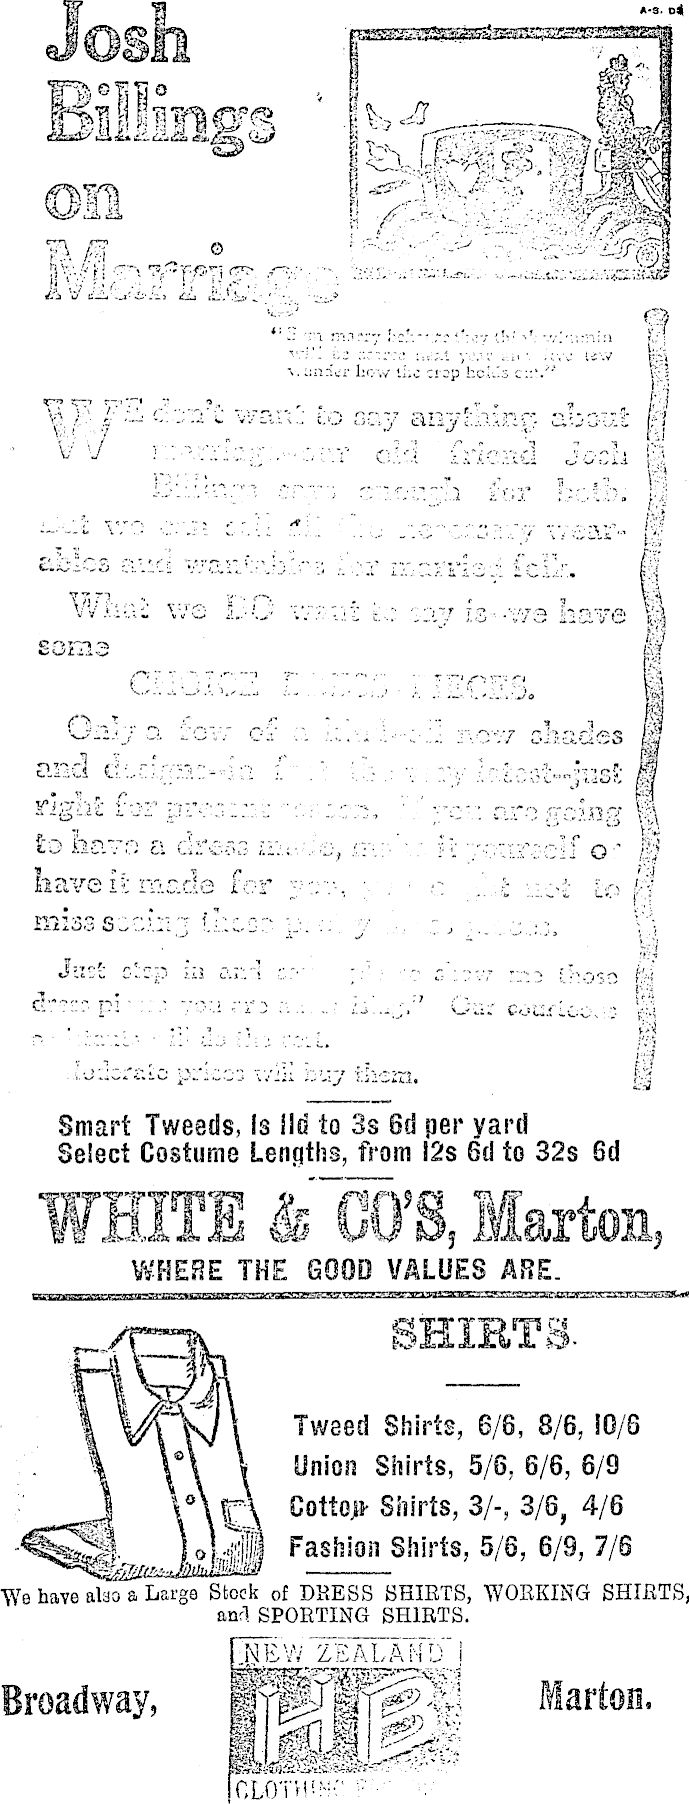 Josh
Billings
on
Marriage
"Sum marry bekause they think wimmin
will be scarce next year and live tew
wunder how the crop holds out."
WE don't want to say anything about
marriage--our old friend Josh
Billings says enough for both.
But we can sell all the necessary wear-
ables and wantables for married folk.
What we DO want to say is--we have
some
CHOICE DRESS PIECES.
Only a few of a kind--all new shades
and designs--in fact the very latest--just
right for present season. If you are going
to have a dress made, make it yourself or
have it made for you, you ought not to
miss seeing these pretty dress pieces.
Just step in and say please show me those
dress pieces you are advertising." Our courteous
assistants will do the rest.
Moderate prices will buy them.
Smart Tweeds, 1s 11d to 3s 6d per yard
Select Costume Lengths, from 12s 6d to 32s 6d
WHITE & CO'S, Marton,
WHERE THE GOOD VALUES ARE.
SHIRTS.
Tweed Shirts, 6/6, 8/6, 10/6
Union Shirts, 5/6, 6/6, 6/9
Cotton Shirts, 3/-, 3/6, 4/6
Fashion Shirts, 5/6, 6/9, 7/6
We have also a Large Stock of DRESS SHIRTS, WORKING SHIRTS,
and SPORTING SHIRTS.
NEW ZEALAND
Broadway, HB Marton.
CLOTHING